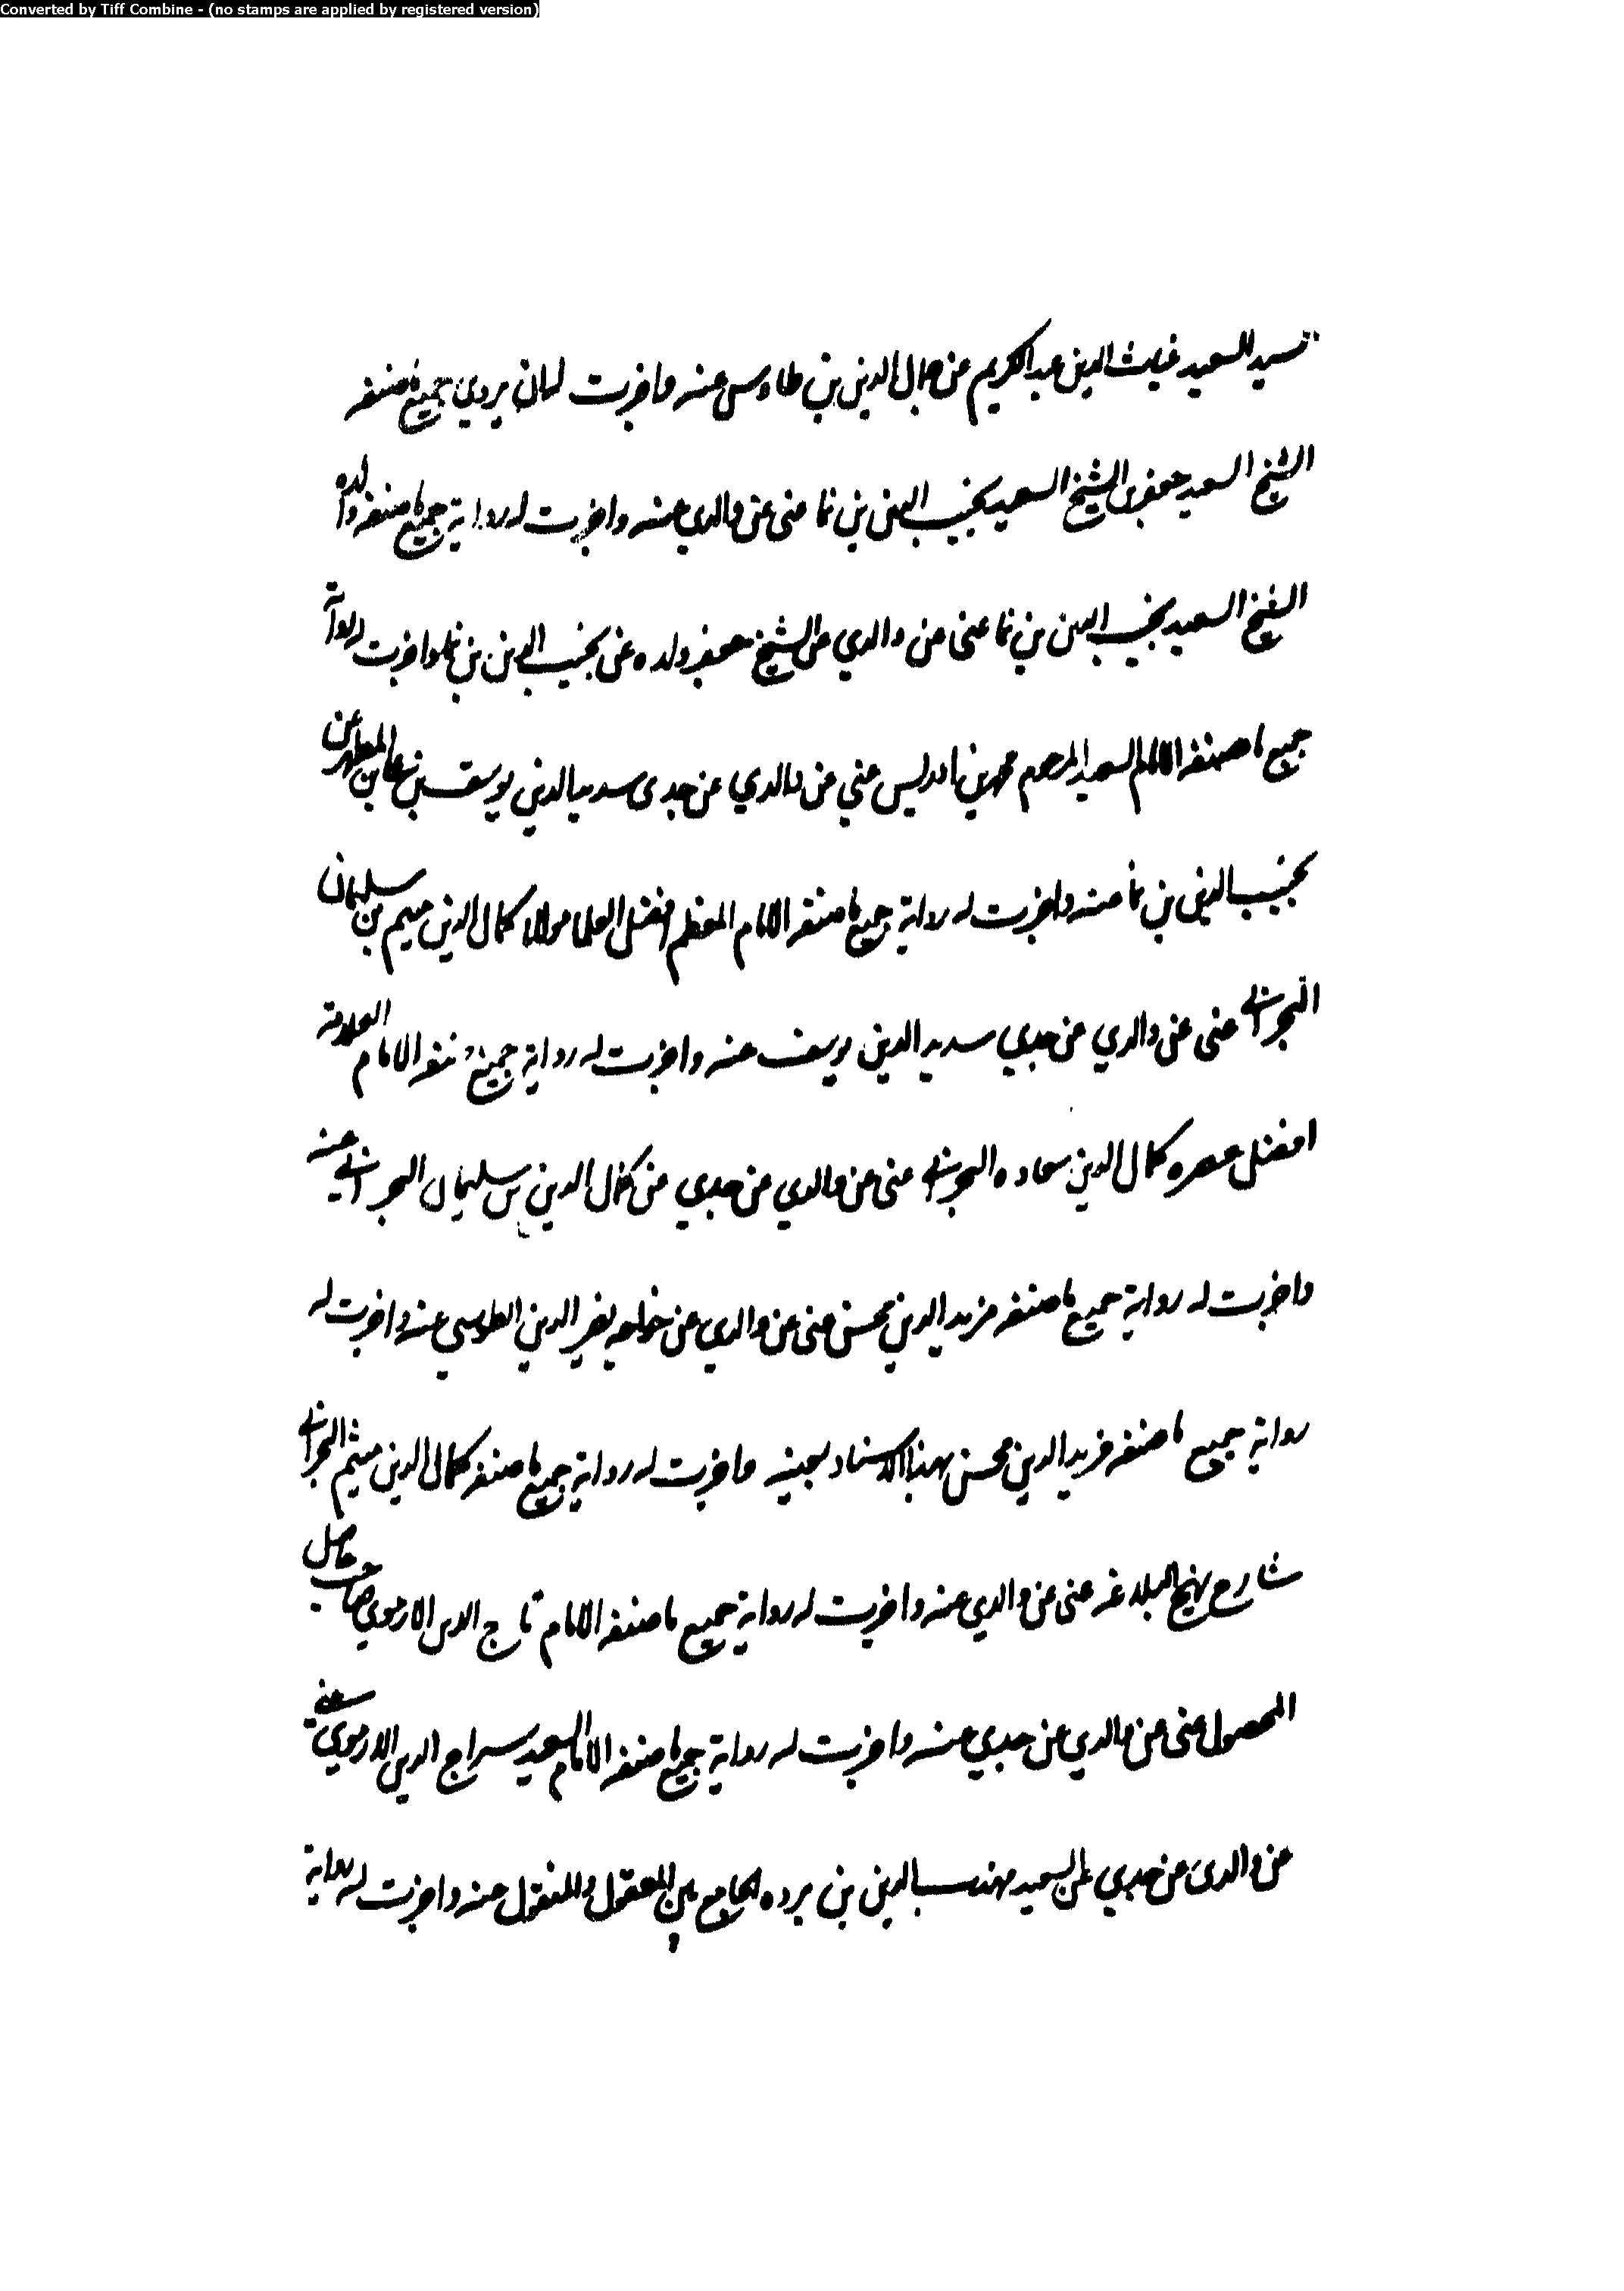 Converted by Tiff Combine - (no stamps are applied by registered version)
السيد السعيد غياث الدين عبد الكريم عن جمال الدين بن طاوس عنه واجزت له ان يروي جميع ما صنفه
الشيخ السعيد جعفر بن الشيخ السعيد نجيب الدين بن نما عني عن والدي عنه واجزت له رواية جميع ما صنفه والده
الشيخ السعيد نجيب الدين بن نما عني عن والدي عن الشيخ جعفر ولده عن نجيب الدين بن نما واجزت له رواية
جميع ما صنفه الامام السعيد المرحوم محمد بن ادريس عني عن والدي عن جدي سديد الدين يوسف بن علي بن المطهر عن
نجيب الدين بن نما عنه واجزت له رواية جميع ما صنفه الامام المعظم افضل العلما مولانا كمال الدين ميثم بن سليمان
البحراني عني عن والدي عن جدي سديد الدين يوسف عنه واجزت له رواية جميع ما صنفه الامام العلامة
افضل عصره كمال الدين سعاده البحراني عني عن والدي عن جدي عن كمال الدين بن سليمان البحراني عنه
واجزت له رواية جميع ما صنفه فريد الدين محسن عني عن والدي عن خواجه نصير الدين الطوسي عنه واجزت له
رواية جميع ما صنفه فريد الدين محسن بهذا الاسناد بعينه واجزت له رواية جميع ما صنفه كمال الدين ميثم البحراني
شارح نهج البلاغه عني عن والدي عنه واجزت له رواية جميع ما صنفه الامام تاج الدين الارموي صاحب حاصل
المحصول عني عن والدي عن جدي عنه واجزت له رواية جميع ما صنفه الامام السعيد سراج الدين الارموي عني
عن والدي عن جدي عن السعيد مهذب الدين بن برده الجامع بين المعقول والمنقول عنه واجزت له رواية